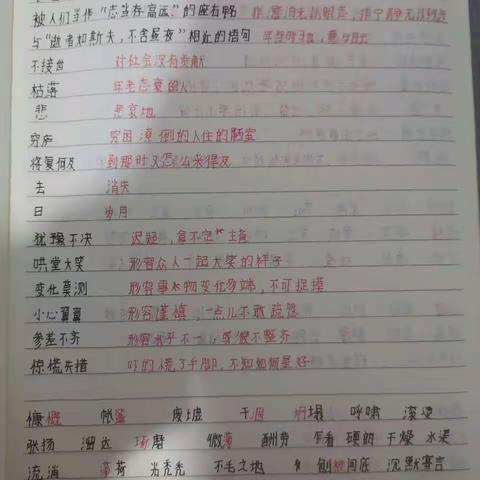 被人们当作“志当存高远”的座右铭 非澹泊无以明志，非宁静无以致远
与“逝者如斯夫，不舍昼夜”相近的语句 年与时驰，意与日去
不接世 对社会没有贡献
枯落 年老志衰的人
悲 悲哀地
穷庐 穷困潦倒的人住的陋室
将复何及 到那时又怎么来得及
去 消失
日 岁月
犹豫不决 迟疑，拿不定主意
哄堂大笑 形容众人一起大笑的样子
变化莫测 形容事物变化多端，不可捉摸
小心翼翼 形容谨慎，一点儿不敢疏忽
参差不齐 形容水平不一或很不整齐
惊慌失措 吓的慌了手脚，不知如何是好
慷慨 帐篷 废墟 干涸 坍塌 呼啸 滚烫
张扬 溜达 琢磨 酬劳 乍看 硬朗 干燥 水渠
流淌 薄荷 光秃秃 不毛之地 刨根问底 沉默寡言